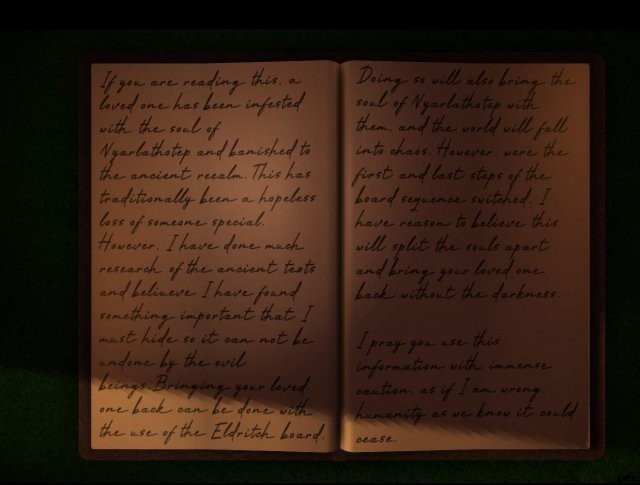 If you are reading this, a
loved one has been infested
with the soul of
Nyarlathotep and banished to
the ancient reealm. This has
traditionally been a hopeless
loss of someone special.
However, I have done much
research of the ancient texts
and beliueve I have found
something important that I
must hide so it can not be
undone by the evil
beings. Bringing your loved
one back can be done with
the use of the Eldritch board.
Doing so will also bring the
soul of Nyarlathotep with
them, and the world will fall
into chaos. However, were the
first and last steps of the
board sequence switched, I
have reason to believe this
will split the souls apart
and bring your loved one
back without the darkness.
I pray you use this
information with immense
caution, as if I am wrong,
humanity as we know it could
cease.